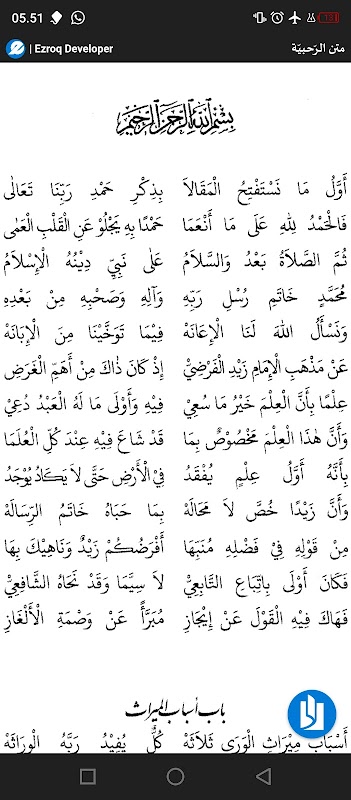 05.51
13
| Ezroq Developer متن الرَحبيّة
بِسْمِ اللهِ الرَّحْمٰنِ الرَّحِيْمِ
أَوَّلُ مَا نَسْتَفْتِحُ الْمَقَالَا بِذِكْرِ حَمْدِ رَبِّنَا تَعَالٰى
فَالْحَمْدُ لِلّٰهِ عَلَى مَا أَنْعَمَا حَمْدًا بِهِ يَجْلُوْ عَنِ الْقَلْبِ الْعَمٰى
ثُمَّ الصَّلَاةُ بَعْدُ وَالسَّلَامُ عَلٰى نَبِيٍّ دِيْنُهُ الْإِسْلَامُ
مُحَمَّدٍ خَاتِمِ رُسْلِ رَبِّهِ وَآلِهِ وَصَحْبِهِ مِنْ بَعْدِهِ
وَنَسْأَلُ اللهَ لَنَا الْإِعَانَهْ فِيْمَا تَوَخَّيْنَا مِنَ الْإِبَانَهْ
عَنْ مَذْهَبِ الْإِمَامِ زَيْدِ الْفَرَضِيْ إِذْ كَانَ ذَاكَ مِنْ أَهَمِّ الْغَرَضِ
عِلْمًا بِأَنَّ الْعِلْمَ خَيْرُ مَا سُعِيْ فِيْهِ وَأَوْلَى مَا لَهُ الْعَبْدُ دُعِيْ
وَأَنَّ هٰذَا الْعِلْمَ مَخْصُوْصٌ بِمَا قَدْ شَاعَ فِيْهِ عِنْدَ كُلِّ الْعُلَمَا
بِأَنَّهُ أَوَّلُ عِلْمٍ يُفْقَدُ فِيْ الْأَرْضِ حَتَّى لَا يَكَادُ يُوْجَدُ
وَأَنَّ زَيْدًا خُصَّ لَا مَحَالَهْ بِمَا حَبَاهُ خَاتَمُ الرِّسَالَهْ
مِنْ قَوْلِهِ فِيْ فَضْلِهِ مُنَبِّهَا أَفْرَضُكُمْ زَيْدٌ وَنَاهِيْكَ بِهَا
فَكَانَ أَوْلَى بِاتِّبَاعِ التَّابِعِيْ لَا سِيَّمَا وَقَدْ نَحَاهُ الشَّافِعِيْ
فَهَاكَ فِيْهِ الْقَوْلَ عَنْ إِيْجَازِ مُبَرَّأً عَنْ وَصْمَةِ الْأَلْغَازِ
باب أسباب الميراث
أَسْبَابُ مِيْرَاثِ الْوَرَى ثَلَاثَهْ كُلٌّ يُفِيْدُ رَبَّهُ الْوِرَاثَهْ